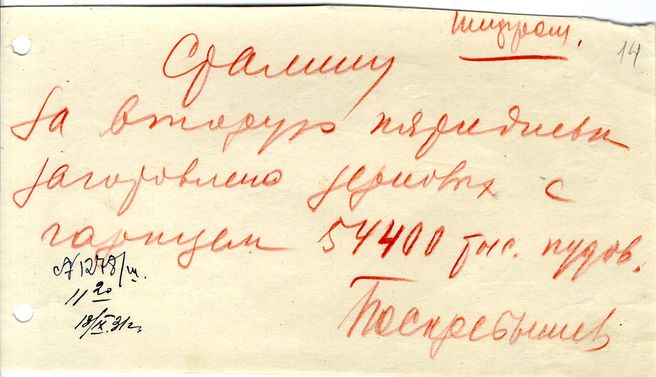 Шифром.
14
Сталину
За вторую пятидневку
заготовлено зерновых с
гарнцем 54400 тыс. пудов.
Поскребышев
№ 1278/ш.
11 20
13/IX.31г.